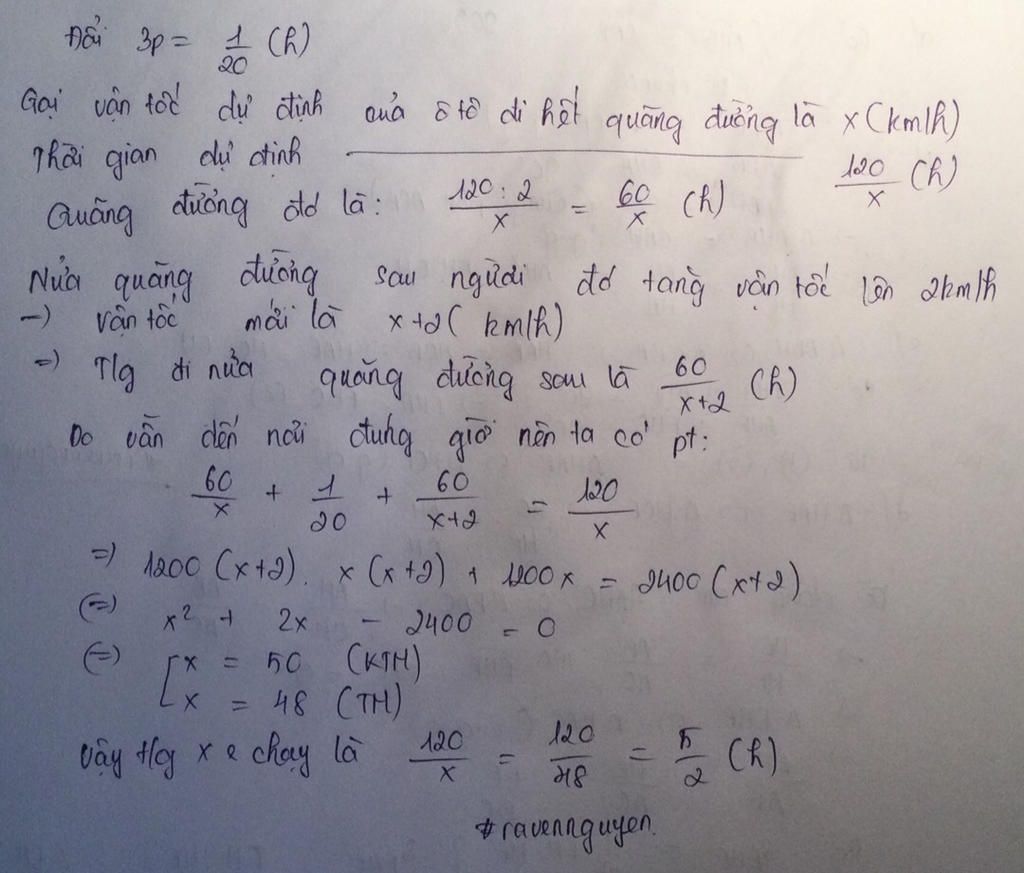 Đổi 3p = 1/20 (h)
Gọi vận tốc dự định của ô tô đi hết quãng đường là x (km/h)
Thời gian dự định ———————— 120/x (h)
Quãng đường đó là: 120:2/x = 60/x (h)
Nửa quãng đường sau người đó tăng vận tốc lên 2km/h
-) vận tốc mới là x+2 (km/h)
=) T/g đi nửa quãng đường sau là 60/x+2 (h)
Do vẫn đến nơi đúng giờ nên ta có pt:
60/x + 1/20 + 60/x+2 = 120/x
=) 1200 (x+2). x (x+2) + 1200x = 2400 (x+2)
(=) x² + 2x - 2400 = 0
(=) [x = 50 (KTM)
x = 48 (TM)
Vậy t/g xe chạy là 120/x = 120/48 = 5/2 (h)
#ravennguyen.